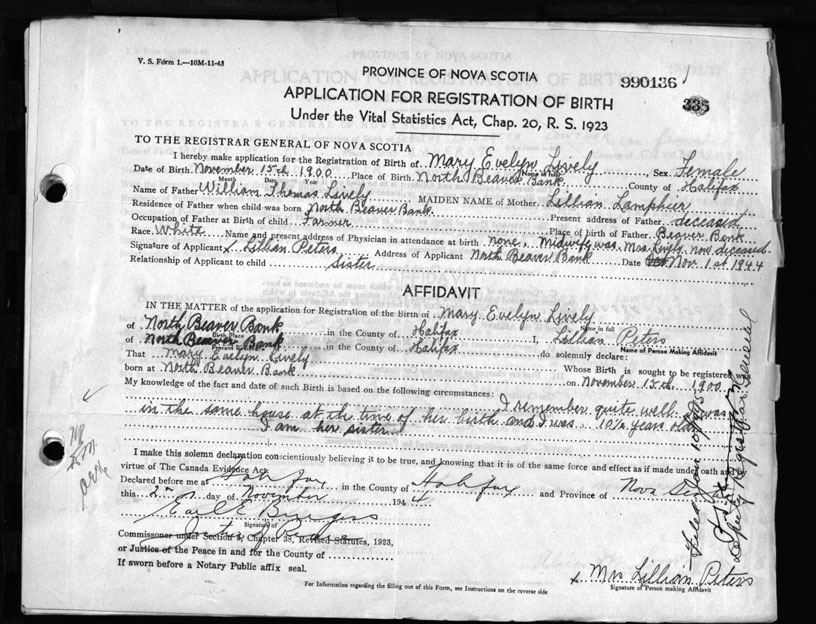 V. S. Form 1.—10M-11-43
PROVINCE OF NOVA SCOTIA
990136
335
APPLICATION FOR REGISTRATION OF BIRTH
Under the Vital Statistics Act, Chap. 20, R. S. 1923
TO THE REGISTRAR GENERAL OF NOVA SCOTIA
I hereby make application for the Registration of Birth of Mary Evelyn Lively Sex Female
Name in full
Date of Birth November 15th 1900 Place of Birth North Beaver Bank County of Halifax
Month Date Year
Name of Father William Thomas Lively MAIDEN NAME of Mother Lillian Lamphier
Residence of Father when child was born North Beaver Bank Present address of Father deceased
Occupation of Father at Birth of child Farmer Place of birth of Father Beaver Bank
Race White Name and present address of Physician in attendance at birth none, Midwife was Mrs Lively now deceased
Signature of Applicant x Lillian Peters Address of Applicant North Beaver Bank Date Nov. 1st 1944
Relationship of Applicant to child Sister
AFFIDAVIT
IN THE MATTER of the application for Registration of the Birth of Mary Evelyn Lively
Name in full
of North Beaver Bank in the County of Halifax I, Lillian Peters
Birth Place
Name of Person Making Affidavit
of North Beaver Bank in the County of Halifax do solemnly declare:
That Mary Evelyn Lively Whose Birth is sought to be registered was
born at North Beaver Bank on November 15th 1900
My knowledge of the fact and date of such Birth is based on the following circumstances:
I remember quite well I was
in the same house at the time of her birth and I was 10½ years old
I am her sister
I make this solemn declaration conscientiously believing it to be true, and knowing that it is of the same force and effect as if made under oath and by
virtue of The Canada Evidence Act.
Declared before me at Halifax in the County of Halifax and Province of Nova Scotia
this 2nd day of November 1944
Earl E. Burgess
Signature of
Commissioner under Section 3, Chapter 38, Revised Statutes, 1923,
or Justice of the Peace in and for the County of
If sworn before a Notary Public affix seal.
x Mrs Lillian Peters
Signature of Person making Affidavit
For Information regarding the filling out of this Form, see Instructions on the reverse side
Deputy Registrar General